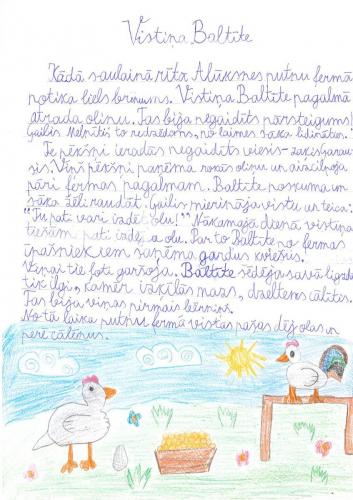 Vistiņa Baltīte
Kādā saulainā rītā Alūksnes putnu fermā
notika liels brīnums. Vistiņa Baltīte pagalmā
atrada oliņu. Tas bija negaidīts pārsteigums!
Gailis Melnītis to redzēdams, no laimes sāka lidināties.
Te pēkšņi ieradās negaidīts viesis - zaķis garau-
sis. Viņš pēkšņi paņēma rokās oliņu un aizcilpoja
pāri fermas pagalmam. Baltīte noskuma un
sāka žēli raudāt. Gailis mierināja vistu un teica:
"Tu pati vari izdēt olu!" Nākamajā dienā vistiņa
tiešām pati izdēja olu. Par to Baltīte no fermas
īpašniekiem saņēma gardus kviešus.
Viņai tie ļoti garšoja. Baltīte sēdēja savā ligzdā
tik ilgi, kamēr izšķīlās mazs, dzeltens cālītis.
Tas bija viņas pirmais bērniņš.
No tā laika putnu fermā vistas pašas dēj olas un
perē cālēnus.